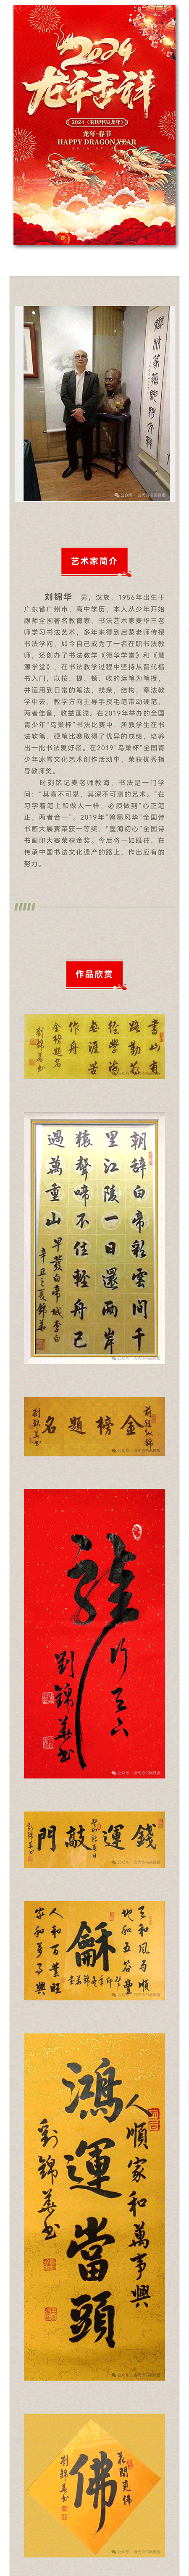 2024
龙年吉祥
2024（农历甲辰龙年）
龙年·春节
HAPPY DRAGON YEAR
公众号 · 当代沧书画微展
艺术家简介
刘锦华 男，汉族，1956年出生于
广东省广州市，高中学历，本人从少年开始
跟师全国著名教育家、书法艺术家麦华三老
师学习书法艺术，多年来得到启蒙老师传授
书法学问，如今自己成为了一名在职书法教
师，还创办了书法教学《德华学堂》和《慧
源学堂》，在书法教学过程中坚持从晋代楷
书入门，以按、提、顿、收的运笔为笔授，
并运用到日常的笔法，线条、结构、章法教
学中去，教学方向主导手授毛笔带动硬笔，
两者佳备，收益匪浅。在2019年举办的全国
青少年"鸟巢杯"书法比赛中，所教学生在书
法软笔、硬笔比赛取得了优异的成绩，培养
出一批书法爱好者。在2019"鸟巢杯"全国青
少年冰雪文化艺术创作活动中，荣获优秀指
导教师奖。
时刻铭记麦老师教诲，书法是一门学
问："其高不可攀，其深不可测的艺术。"在
习字着笔上和做人一样，必须做到"心正笔
正，两者合一"。2019年"翰墨风华"全国诗
书画大展赛荣获一等奖，"墨海初心"全国诗
书画印大赛荣获金奖。今后将一如既往，在
传承中国书法文化遗产的路上，作出应有的
努力。
作品欣赏
書山有
路勤为
径学海
無涯苦
作舟
金榜题名
劉锦華书
朝辞白帝彩雲间千
里江陵一日還两岸
猿聲啼不住輕舟已
過萬重山
早發白帝城李白
辛丑之夏锦華
前程似锦
金榜題名
劉锦華书
龍行天下
劉锦華书
錢運敲門
天和风雨顺
地和五谷豐
龢
人和百業旺
家和萬事興
人順家和萬事興
鴻運當頭
劉錦華书
花開見佛
佛
劉錦華书